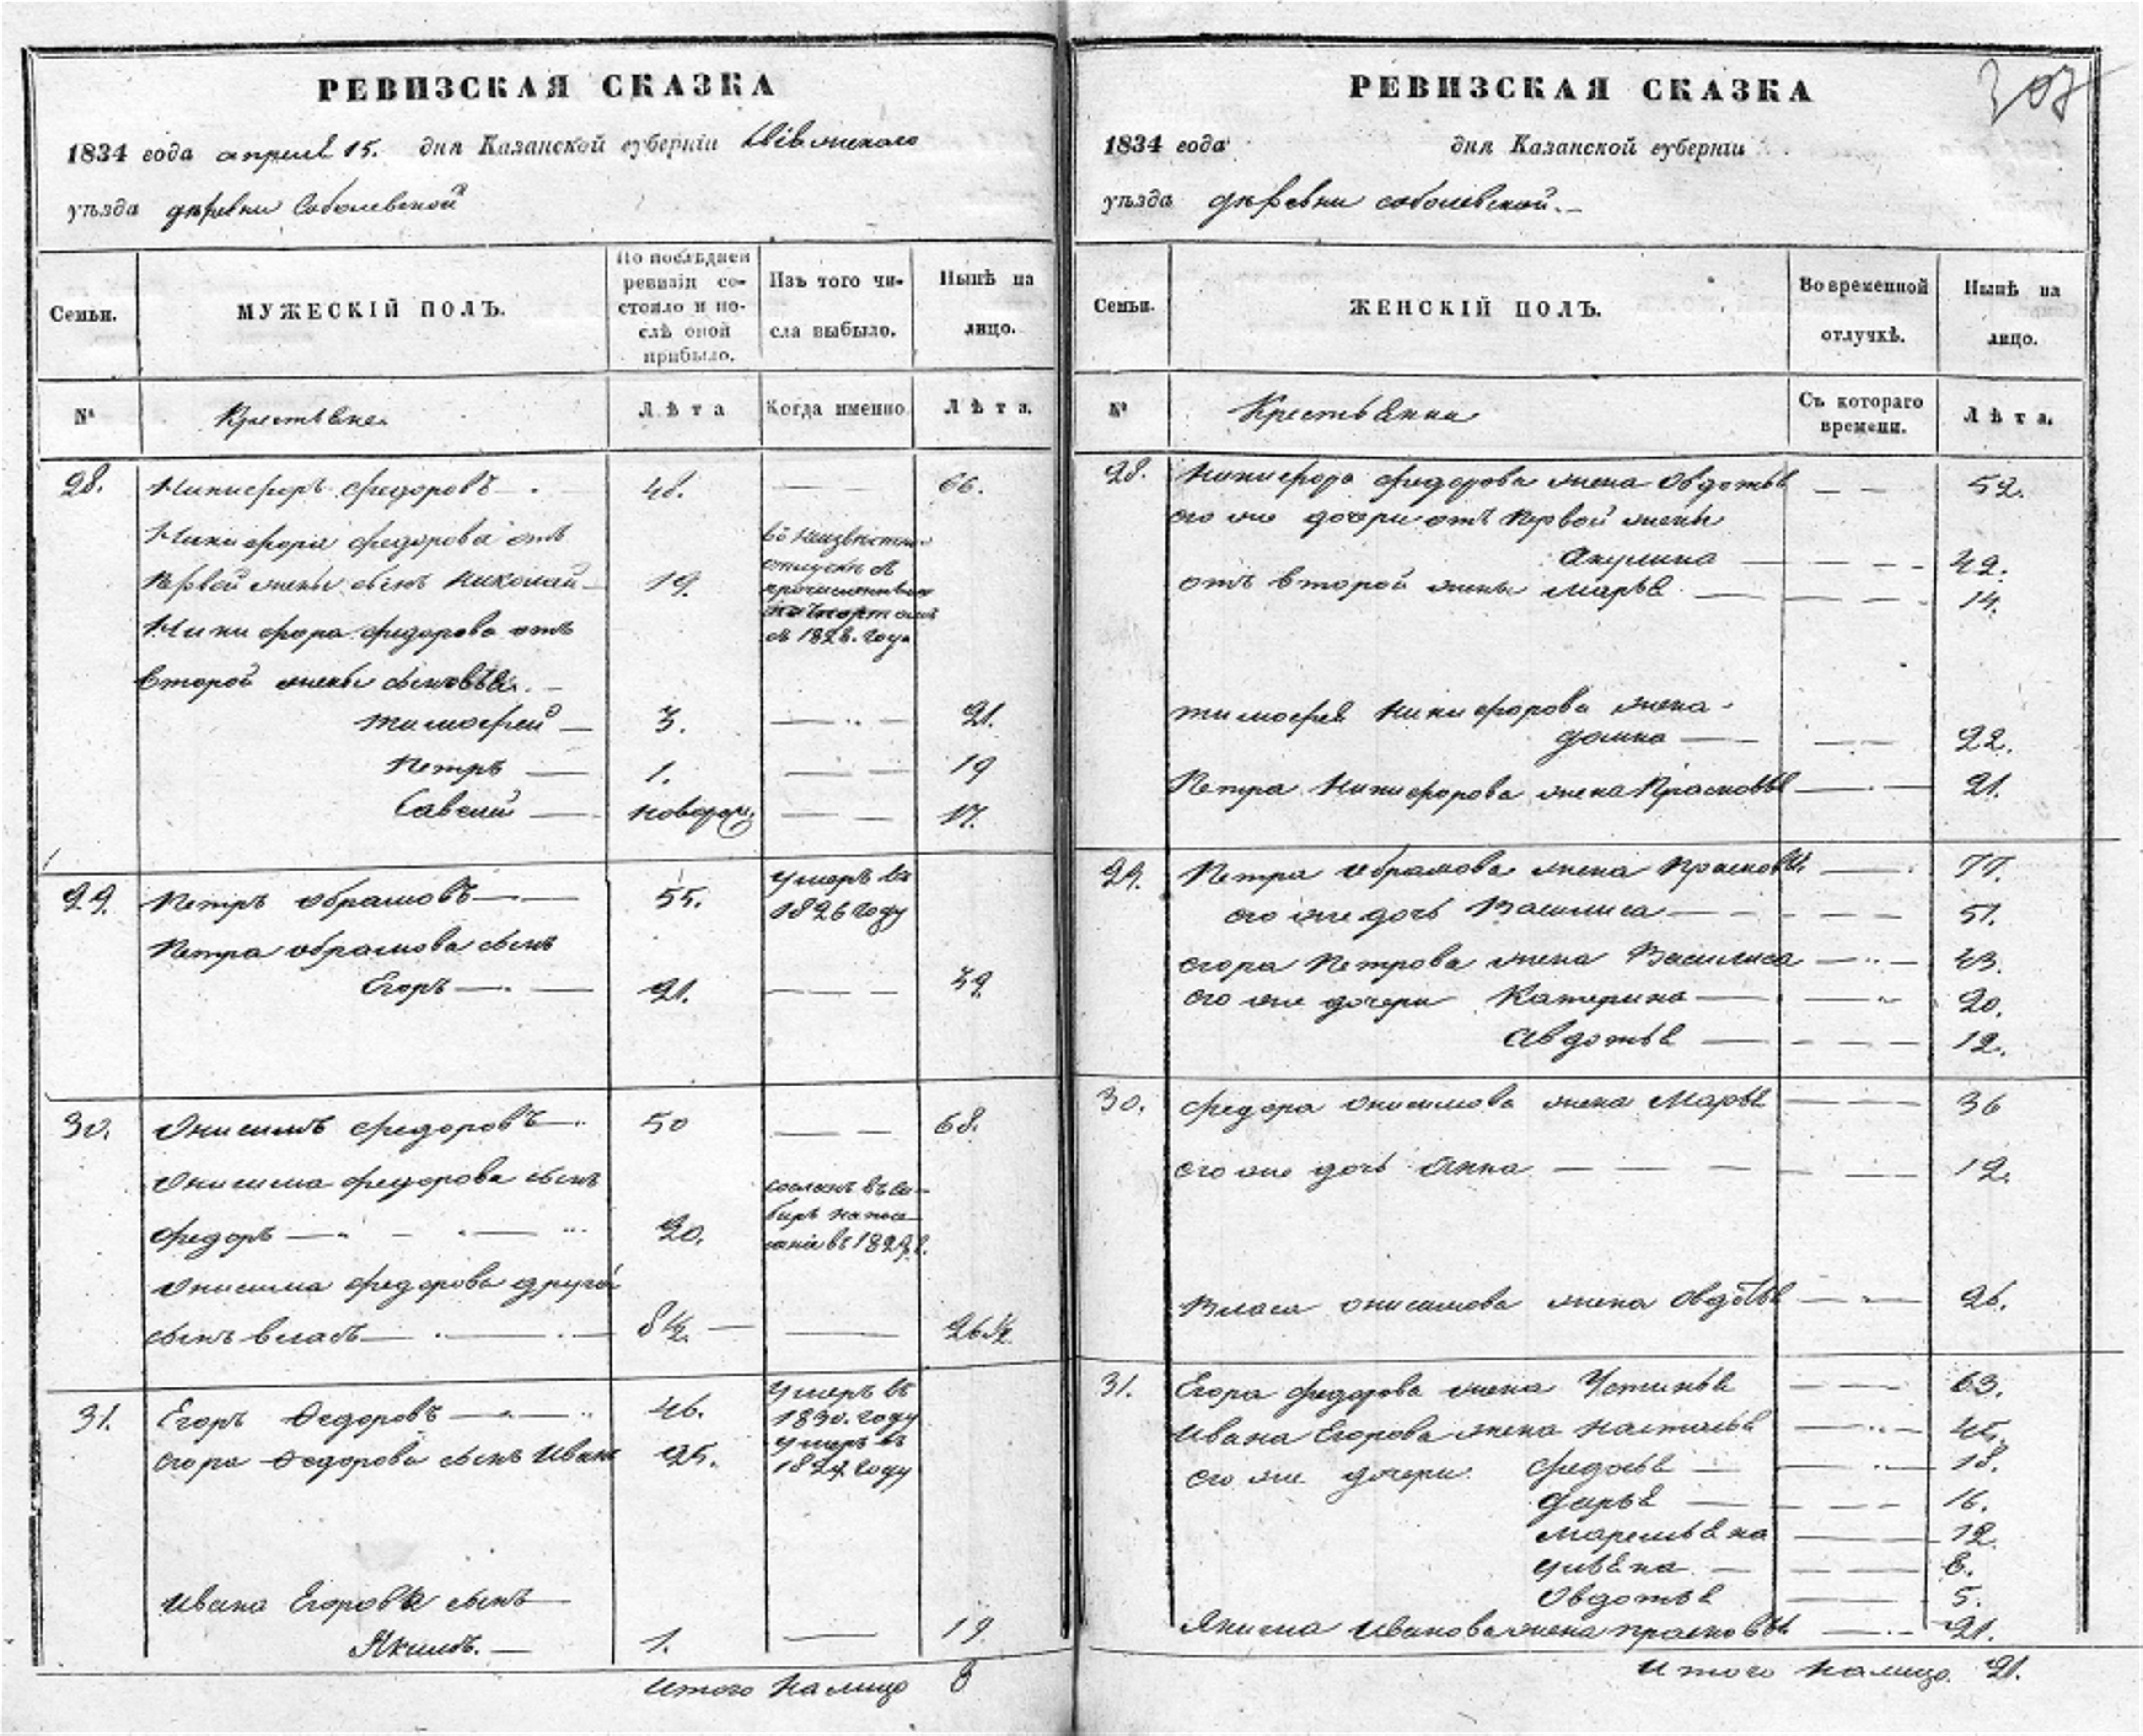 РЕВИЗСКАЯ СКАЗКА
1834 года апреля 15. дня Казанской губерніи Свіяжскаго
уѣзда деревни Соболевской
Семьи.
МУЖЕСКІЙ ПОЛЪ.
По послѣдней
ревизіи со-
стояло и по-
слѣ оной
прибыло.
Изъ того чи-
сла выбыло.
Нынѣ на
лицо.
№
Крестьяне
Лѣта
Когда именно
Лѣта.
28. Никифоръ федоровъ 48. — — 66.
Никифора федорова отъ
первой жены сынъ Николай 19. въ неизвѣстной
отлучкѣ
съ 1828. года
Никифора федорова отъ
второй жены сыновья.
тимофей — 3. — — 21.
Петръ — 1. — — 19
Савелий — новорож. — — 17.
29. Петръ обрамовъ — 55. умеръ въ
1826 году
Петра обрамова сынъ
Егоръ — 21. — — 39.
30. Онисимъ федоровъ 50 — — 68.
Онисима федорова сынъ
федоръ — 20. сосланъ въ си-
бирь на посе-
ленiе въ 182
Онисима федорова другой
сынъ власъ — 8 1/2 — — 26 1/2.
31. Егоръ Ѳедоровъ — 46. умеръ въ
1830. году
егора Ѳедорова сынъ Иванъ 25. умеръ въ
году
Ивана Егорова сынъ
Якимъ. — 1. — 19.
Итого на лицо 8
307
РЕВИЗСКАЯ СКАЗКА
1834 года дня Казанской губерніи
уѣзда деревни соболевской.
Семьи.
ЖЕНСКІЙ ПОЛЪ.
Во временной
отлучкѣ.
Нынѣ на
лицо.
№
Крестьянки
Съ котораго
времени.
Лѣта.
28. Никифора федорова жена Овдотья — — 52.
его же дочери отъ первой жены
Акулина — — — 42.
отъ второй жены марья — — — 14.
тимофея Никифорова жена
домна — — — 22.
Петра Никифорова жена Прасковья — — 21.
29. Петра обрамова жена Прасковья — 77.
его же дочь Василиса — — — 51.
егора Петрова жена Василиса — — 43.
его же дочери Катерина — — 20.
Авдотья — — — 12.
30. федора онисимова жена Марья — — 36
его же дочь Анна — — — 12.
Власа онисимова жена Овдотья — — 26.
31. Егора федорова жена Устинья — — 63.
Ивана Егорова жена настасья — — 45.
его же дочери федосья — — 18.
дарья — — — 16.
маремьяна — — 12.
— — — 8.
Овдотья — 5.
Якима Иванова жена прасковья — — 21.
Итого на лицо. 21.